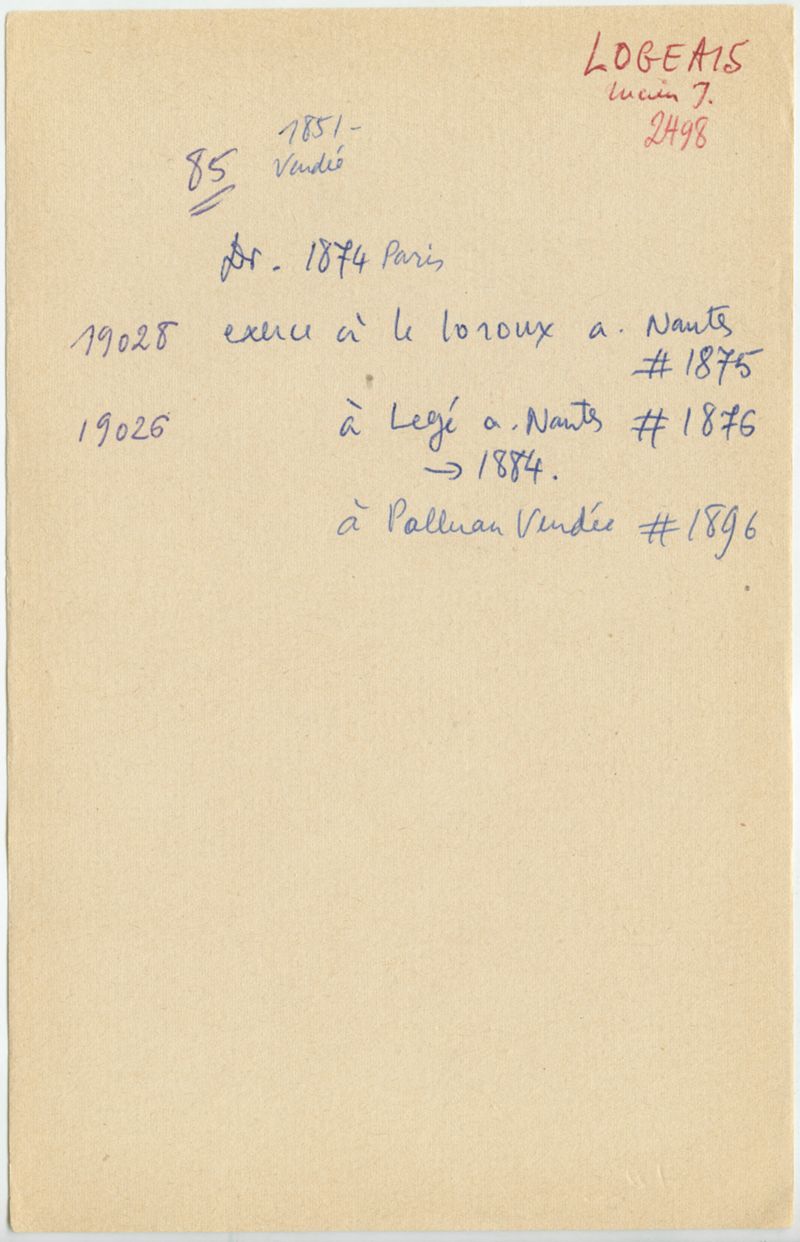 LOGEAIS
Lucien J.
2498
1851-
85 Vendée
Dr. 1874 Paris
19028 exerce à le loroux a. Nantes
# 1875
19026 à Legé a. Nantes # 1876
→ 1884.
à Palluau Vendée # 1896